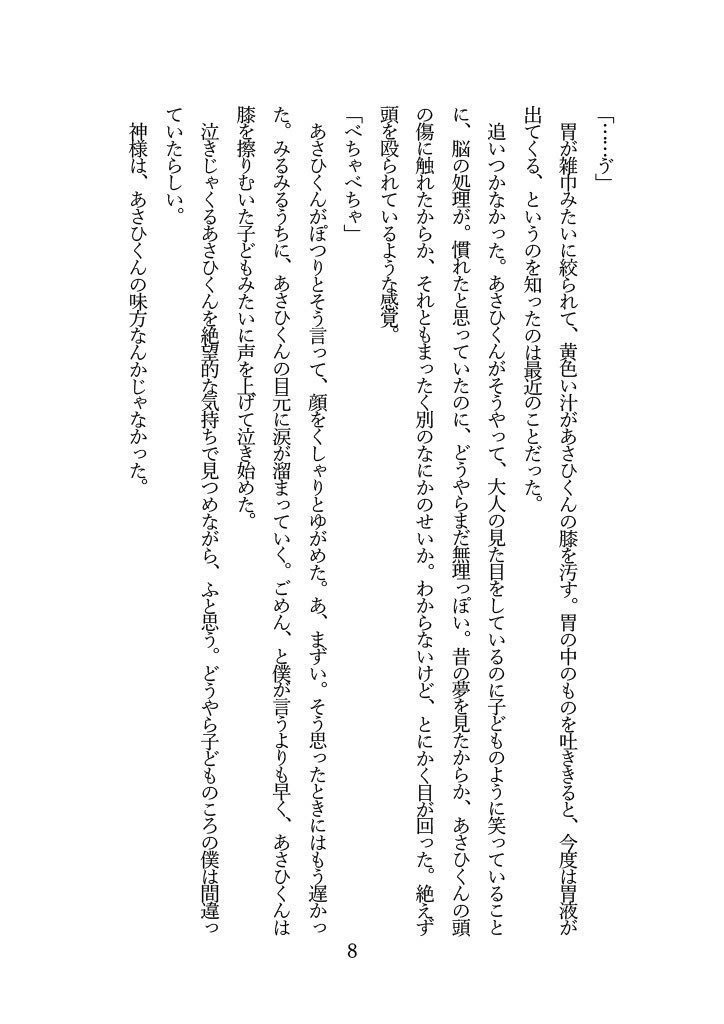 「……ゔ」
　胃が雑巾みたいに絞られて、黄色い汁があさひくんの膝を汚す。胃の中のものを吐ききると、今度は胃液が
出てくる、というのを知ったのは最近のことだった。
　追いつかなかった。あさひくんがそうやって、大人の見た目をしているのに子どものように笑っていること
に、脳の処理が。慣れたと思っていたのに、どうやらまだ無理っぽい。昔の夢を見たからか、あさひくんの頭
の傷に触れたからか、それともまったく別のなにかのせいか。わからないけど、とにかく目が回った。絶えず
頭を殴られているような感覚。
「べちゃべちゃ」
　あさひくんがぽつりとそう言って、顔をくしゃりとゆがめた。あ、まずい。そう思ったときにはもう遅かっ
た。みるみるうちに、あさひくんの目元に涙が溜まっていく。ごめん、と僕が言うよりも早く、あさひくんは
膝を擦りむいた子どもみたいに声を上げて泣き始めた。
　泣きじゃくるあさひくんを絶望的な気持ちで見つめながら、ふと思う。どうやら子どものころの僕は間違っ
ていたらしい。
　神様は、あさひくんの味方なんかじゃなかった。
8